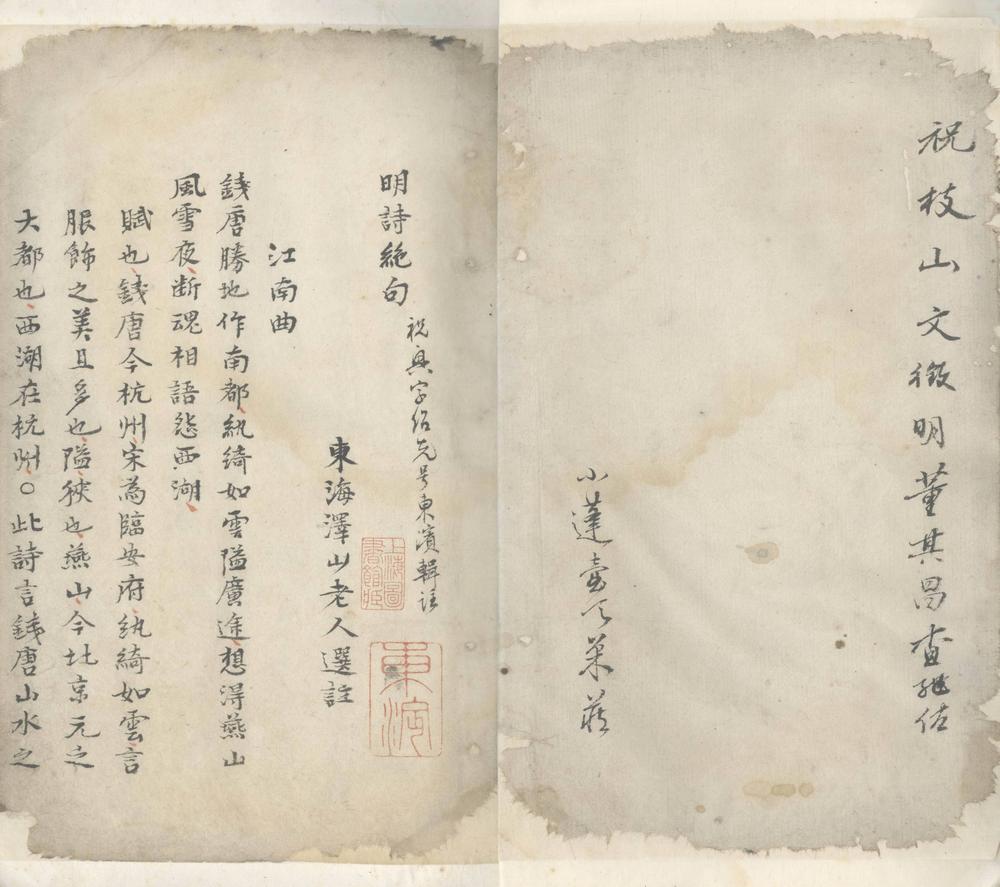 祝枝山文徵明董其昌查繼佐
小蓬壺
明詩絶句
祝奐字伯先号東濱輯註
東海澤山老人選註
江南曲
錢唐勝地作南都紈綺如雲隘廣途想得燕山
風雪夜断魂相語怨西湖
賦也錢唐今杭州宋為臨安府紈綺如雲言
服飾之美且多也隘狹也燕山今北京元之
大都也西湖在杭州○此詩言錢唐山水之
上海圖
書館藏
東海